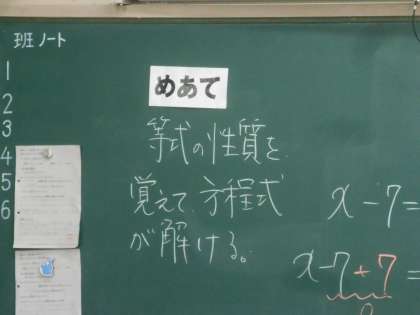 班ノート
1
2
3
4
5
6
めあて
等式の性質を
覚えて、方程式
が解ける。
x-7=
x-7+7=